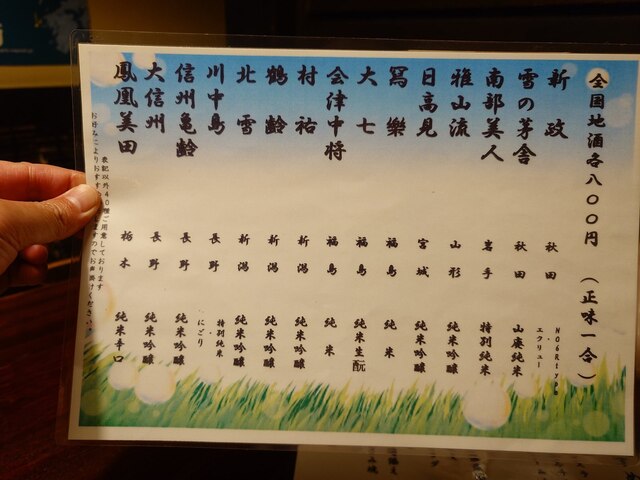 全国地酒各八〇〇円 (正味一合)
新政 秋田 NO6Rtype・エクリュー
雪の茅舎 秋田 山廃純米
南部美人 岩手 特別純米
雅山流 山形 純米吟醸
日高見 宮城 純米吟醸
冩樂 福島 純米
大七 福島 純米生酛
会津中将 福島 純米
村祐 新潟 純米吟醸
鶴齢 新潟 純米吟醸
北雪 新潟 純米吟醸
川中島 長野 特別純米・にごり
信州亀齢 長野 純米吟醸
大信州 長野 純米吟醸
鳳凰美田 栃木 純米辛口
表記以外40種ご用意しております
お好みによりおすすめ
ますのでお声掛けください